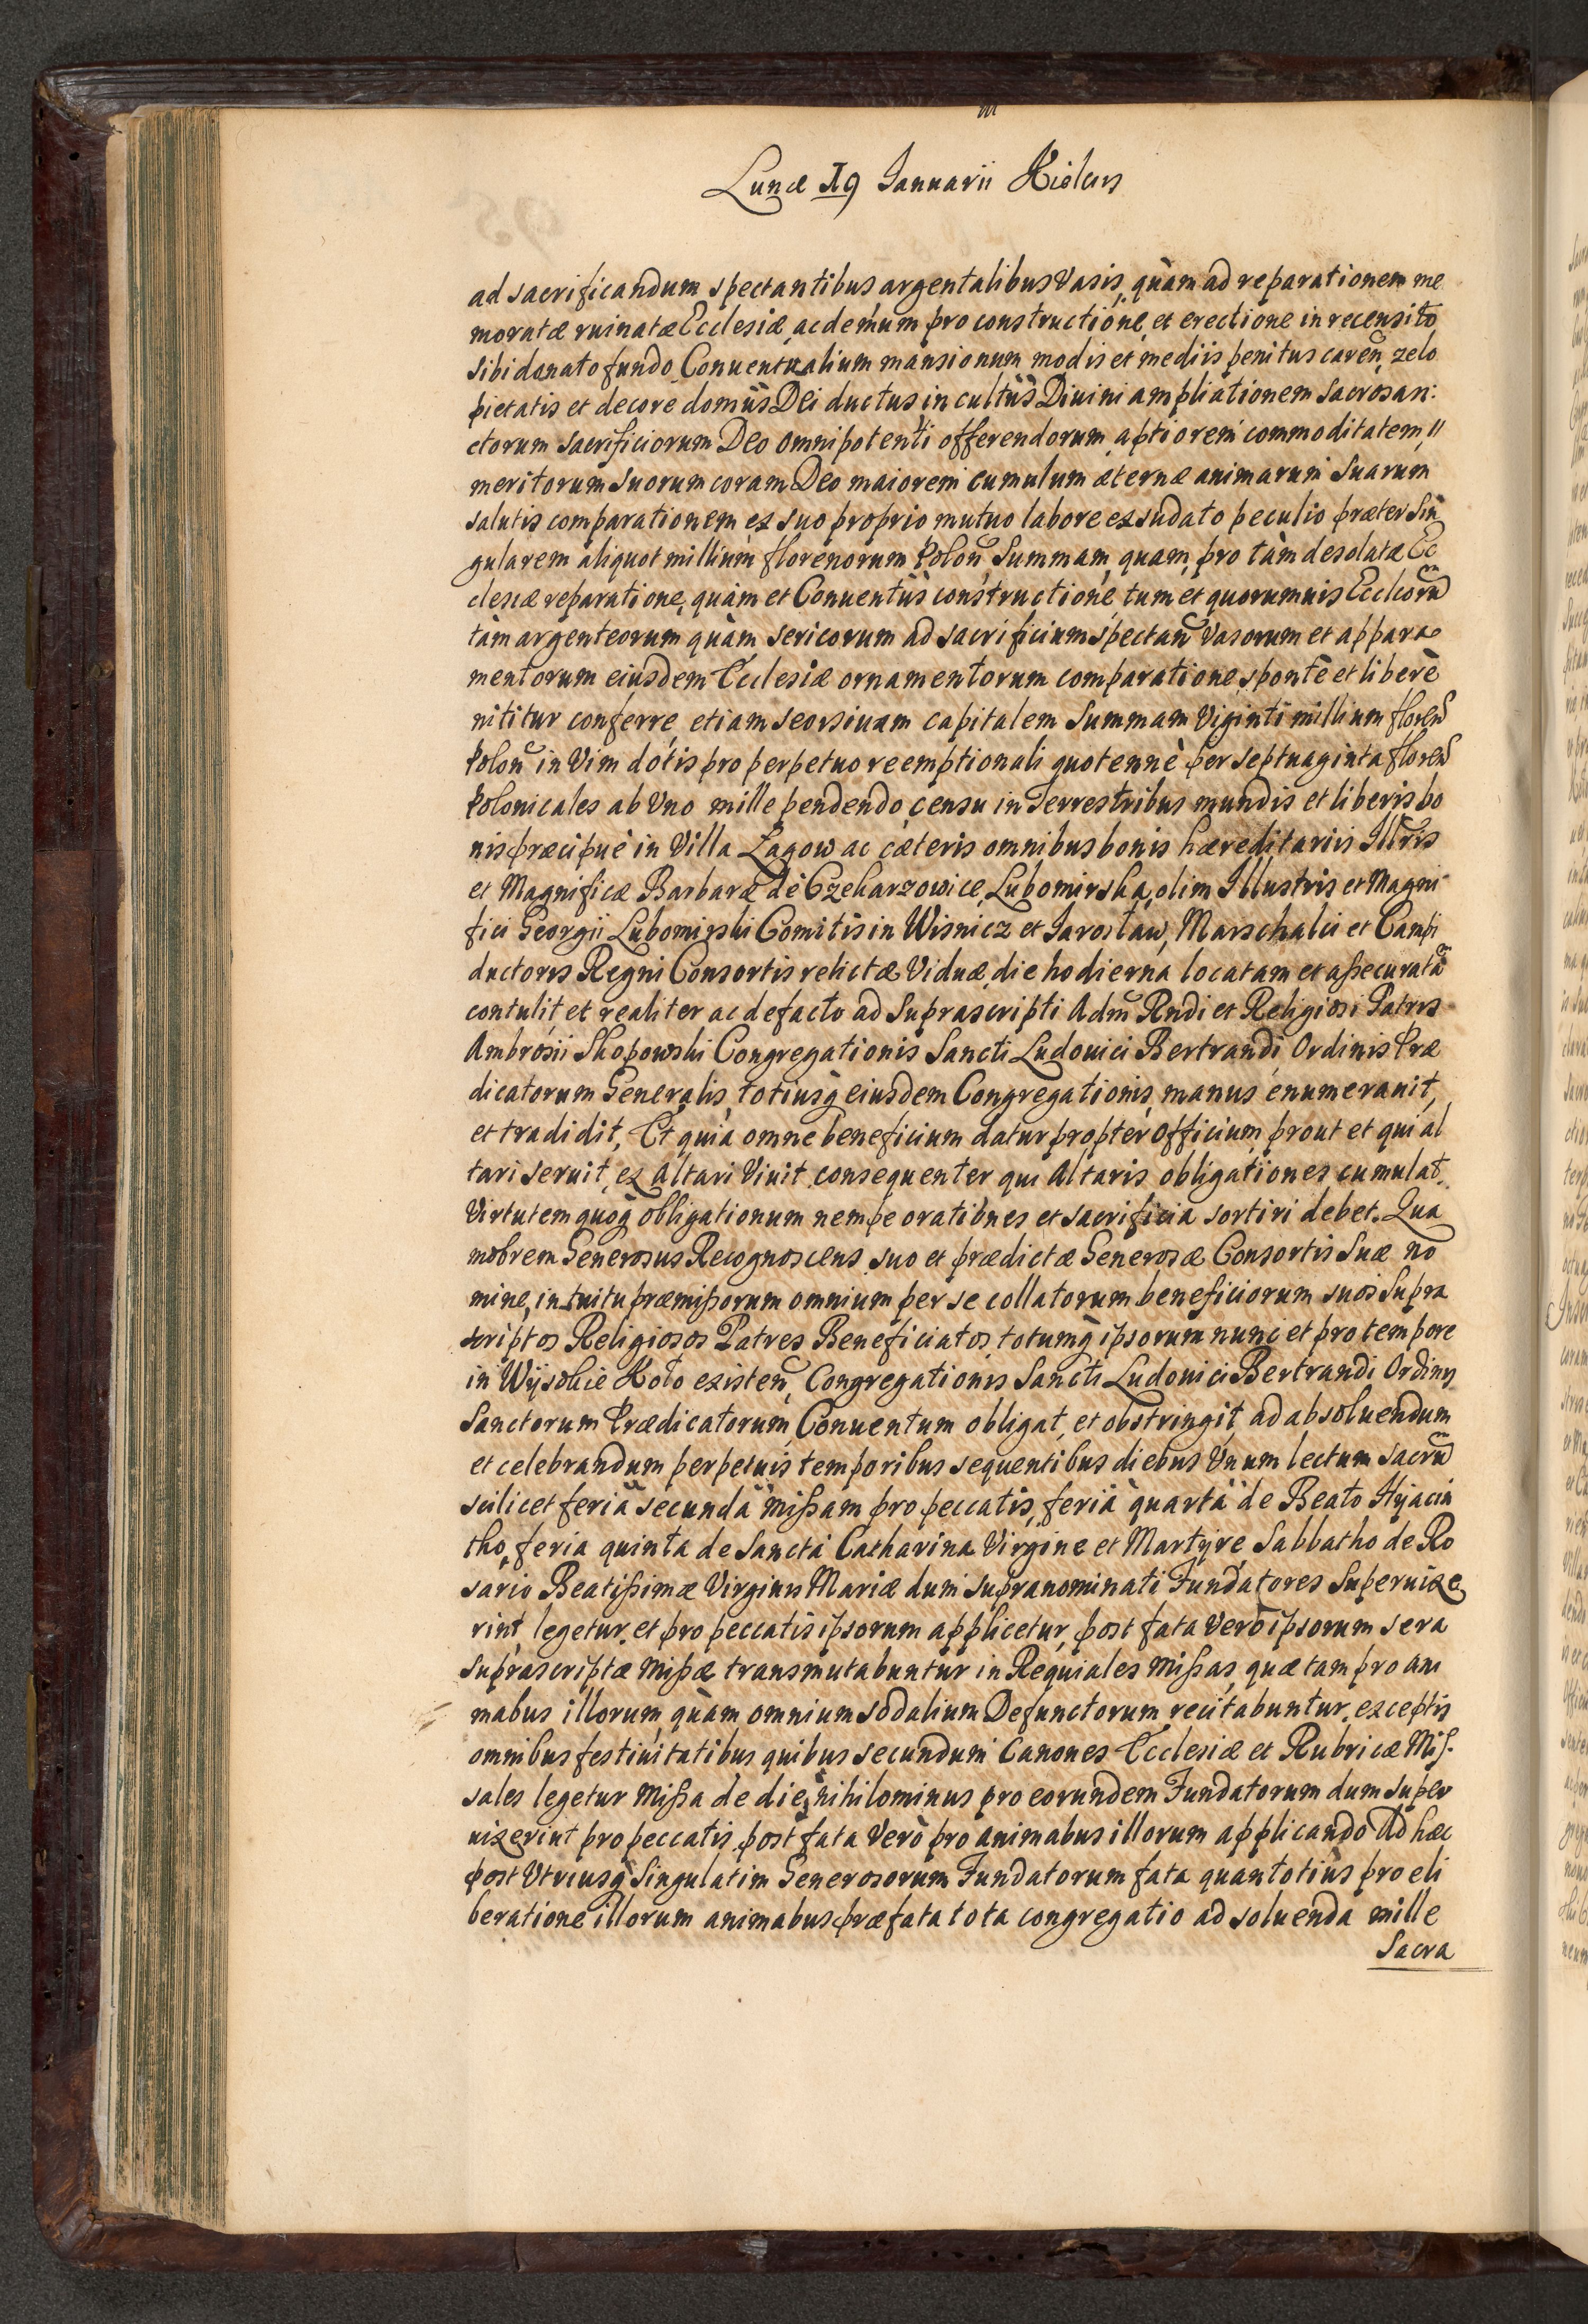 Lunæ 19 Ianuarii Kielcis
ad sacrificandum spectantibus argentalibus Vasis, quàm ad reparationem me
moratæ ruinatæ Ecclesiæ, ac demum pro constructione, et erectione in recensito
sibi donato fundo Conuentualium mansionum modis et mediis penitus careñ, zelo
pietatis et decore domûs Dei ductus in cultûs Diuini ampliationem Sacrosan:
ctorum sacrificiorum Deo omnipotenti offerendorum aptiorem commoditatem,
meritorum suorum coram Deo maiorem cumulum æternæ animarum Suarum
salutis comparationem, ex suo proprio mutuo labore exsudato peculio præter Sin
gularem aliquot millium florenorum Poloñ Summam, quam, pro tàm desolatæ Ec
clesiæ reparatione, quàm et Conuentûs constructione, tum et quorumuis Ecclesiarum
tàm argenteorum quàm sericorum ad sacrificium spectañ Vasorum et appara
mentorum eiusdem Ecclesiæ ornamentorum comparatione, spontè et liberè
nititur conferre, etiam seorsiuam capitalem Summam Viginti millium floreñ
Poloñ in Vim dotis pro perpetuo reemptionali quotennè per septuaginta floreñ
Polonicales ab Vno mille pendendo censu in Terrestribus mundis et liberis bo
nis præcipuè in Villa Łagow ac cæteris omnibus bonis hæreditariis Illris
et Magnificæ Barbaræ de Czekarzowice Lubomirska, olim Illustris et Magni
fici Georgii Lubomirski Comitis in Wisnicz et Iarosław, Marschalci et Campi
ductoris Regni Consortis relictæ Viduæ, die hodierna locatam et assecuratã
contulit, et realiter ac de facto ad Suprascripti Adm̃ Rndi et Religiosi Patris
Ambrosii Skopowski Congregationis Sancti Ludouici Bertrandi, Ordinis Præ
dicatorum Generalis, totiusq̃ eiusdem Congregationis, manus enumerauit,
et tradidit, Et quia omne beneficium datur propter Officium, prout et qui al
tari seruit, ex Altari Viuit consequenter qui Altaris obligationes cumulat
Virtutem quoq̃ obligationum nempe orationes et sacrificia sortiri debet. Qua
mobrem Generosus Recognoscens suo et prædictæ Generosæ Consortis Suæ no
mine, intuitu præmissorum omnium per se collatorum beneficiorum, suos Supra
scriptos Religiosos Patres Beneficiatos, totumq̃ ipsorum nunc et pro tempore
in Wysokie Koło existeñ, Congregationis Sancti Ludouici Bertrandi Ordinis
Sanctorum Prædicatorum, Conuentum obligat, et obstringit, ad absoluendum
et celebrandum perpetuis temporibus sequentibus diebus Vnum lectum sacrũ
scilicet feriâ secundâ Missam pro peccatis, feriâ quartâ de Beato Hyacin
tho, feria quinta de Sancta Catharina Virgine et Martyre Sabbatho de Ro
sario Beatissimæ Virginis Mariæ dum supranominati Fundatores Superuixe
rint legetur, et pro peccatis ipsorum applicetur, post fata Verò ipsorum sera
suprascriptæ Missæ transmutabuntur in Requiales Missas, quæ tam pro ani
mabus illorum, quàm omnium sodalium Defunctorum, recitabuntur, exceptis
omnibus festiuitatibus quibus secundum Canones Ecclesiæ et Rubricæ Mis.
sales legetur Missa de die, nihilominus pro eorundem Fundatorum dum super
uixerint pro peccatis, post fata Verò pro animabus illorum applicando Ad hæc
post Vtriusq̃ Singulatim Generosorum Fundatorum fata quantotiùs pro eli
beratione illorum animabus præfata tota congregatio ad soluenda mille
Sacra